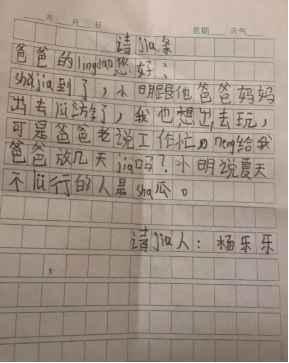 年 月 日 星期 天气
请jia条
爸爸的lingdao您好：
shǔjia到了，小明跟他爸爸妈妈
出去瓜行了，我也想出去玩，
可是爸爸老说工作忙，neng给我
爸爸放几天jia吗？小明说夏天
不瓜行的人是sha瓜。
请jia人：杨乐乐